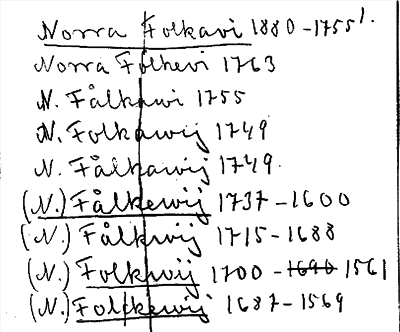 Norra Folkavi 1880-1755'.
Norra Folkevi 1763
N. Fålkawi 1755
N. Folkawij 1749
N. Fålkawij 1749.
(N.) Fålkewij 1737-1600
(N.) Fålkwij 1715-1688
(N.) Folkwij 1700-1690 1561
(N.) Folckewij 1687-1569